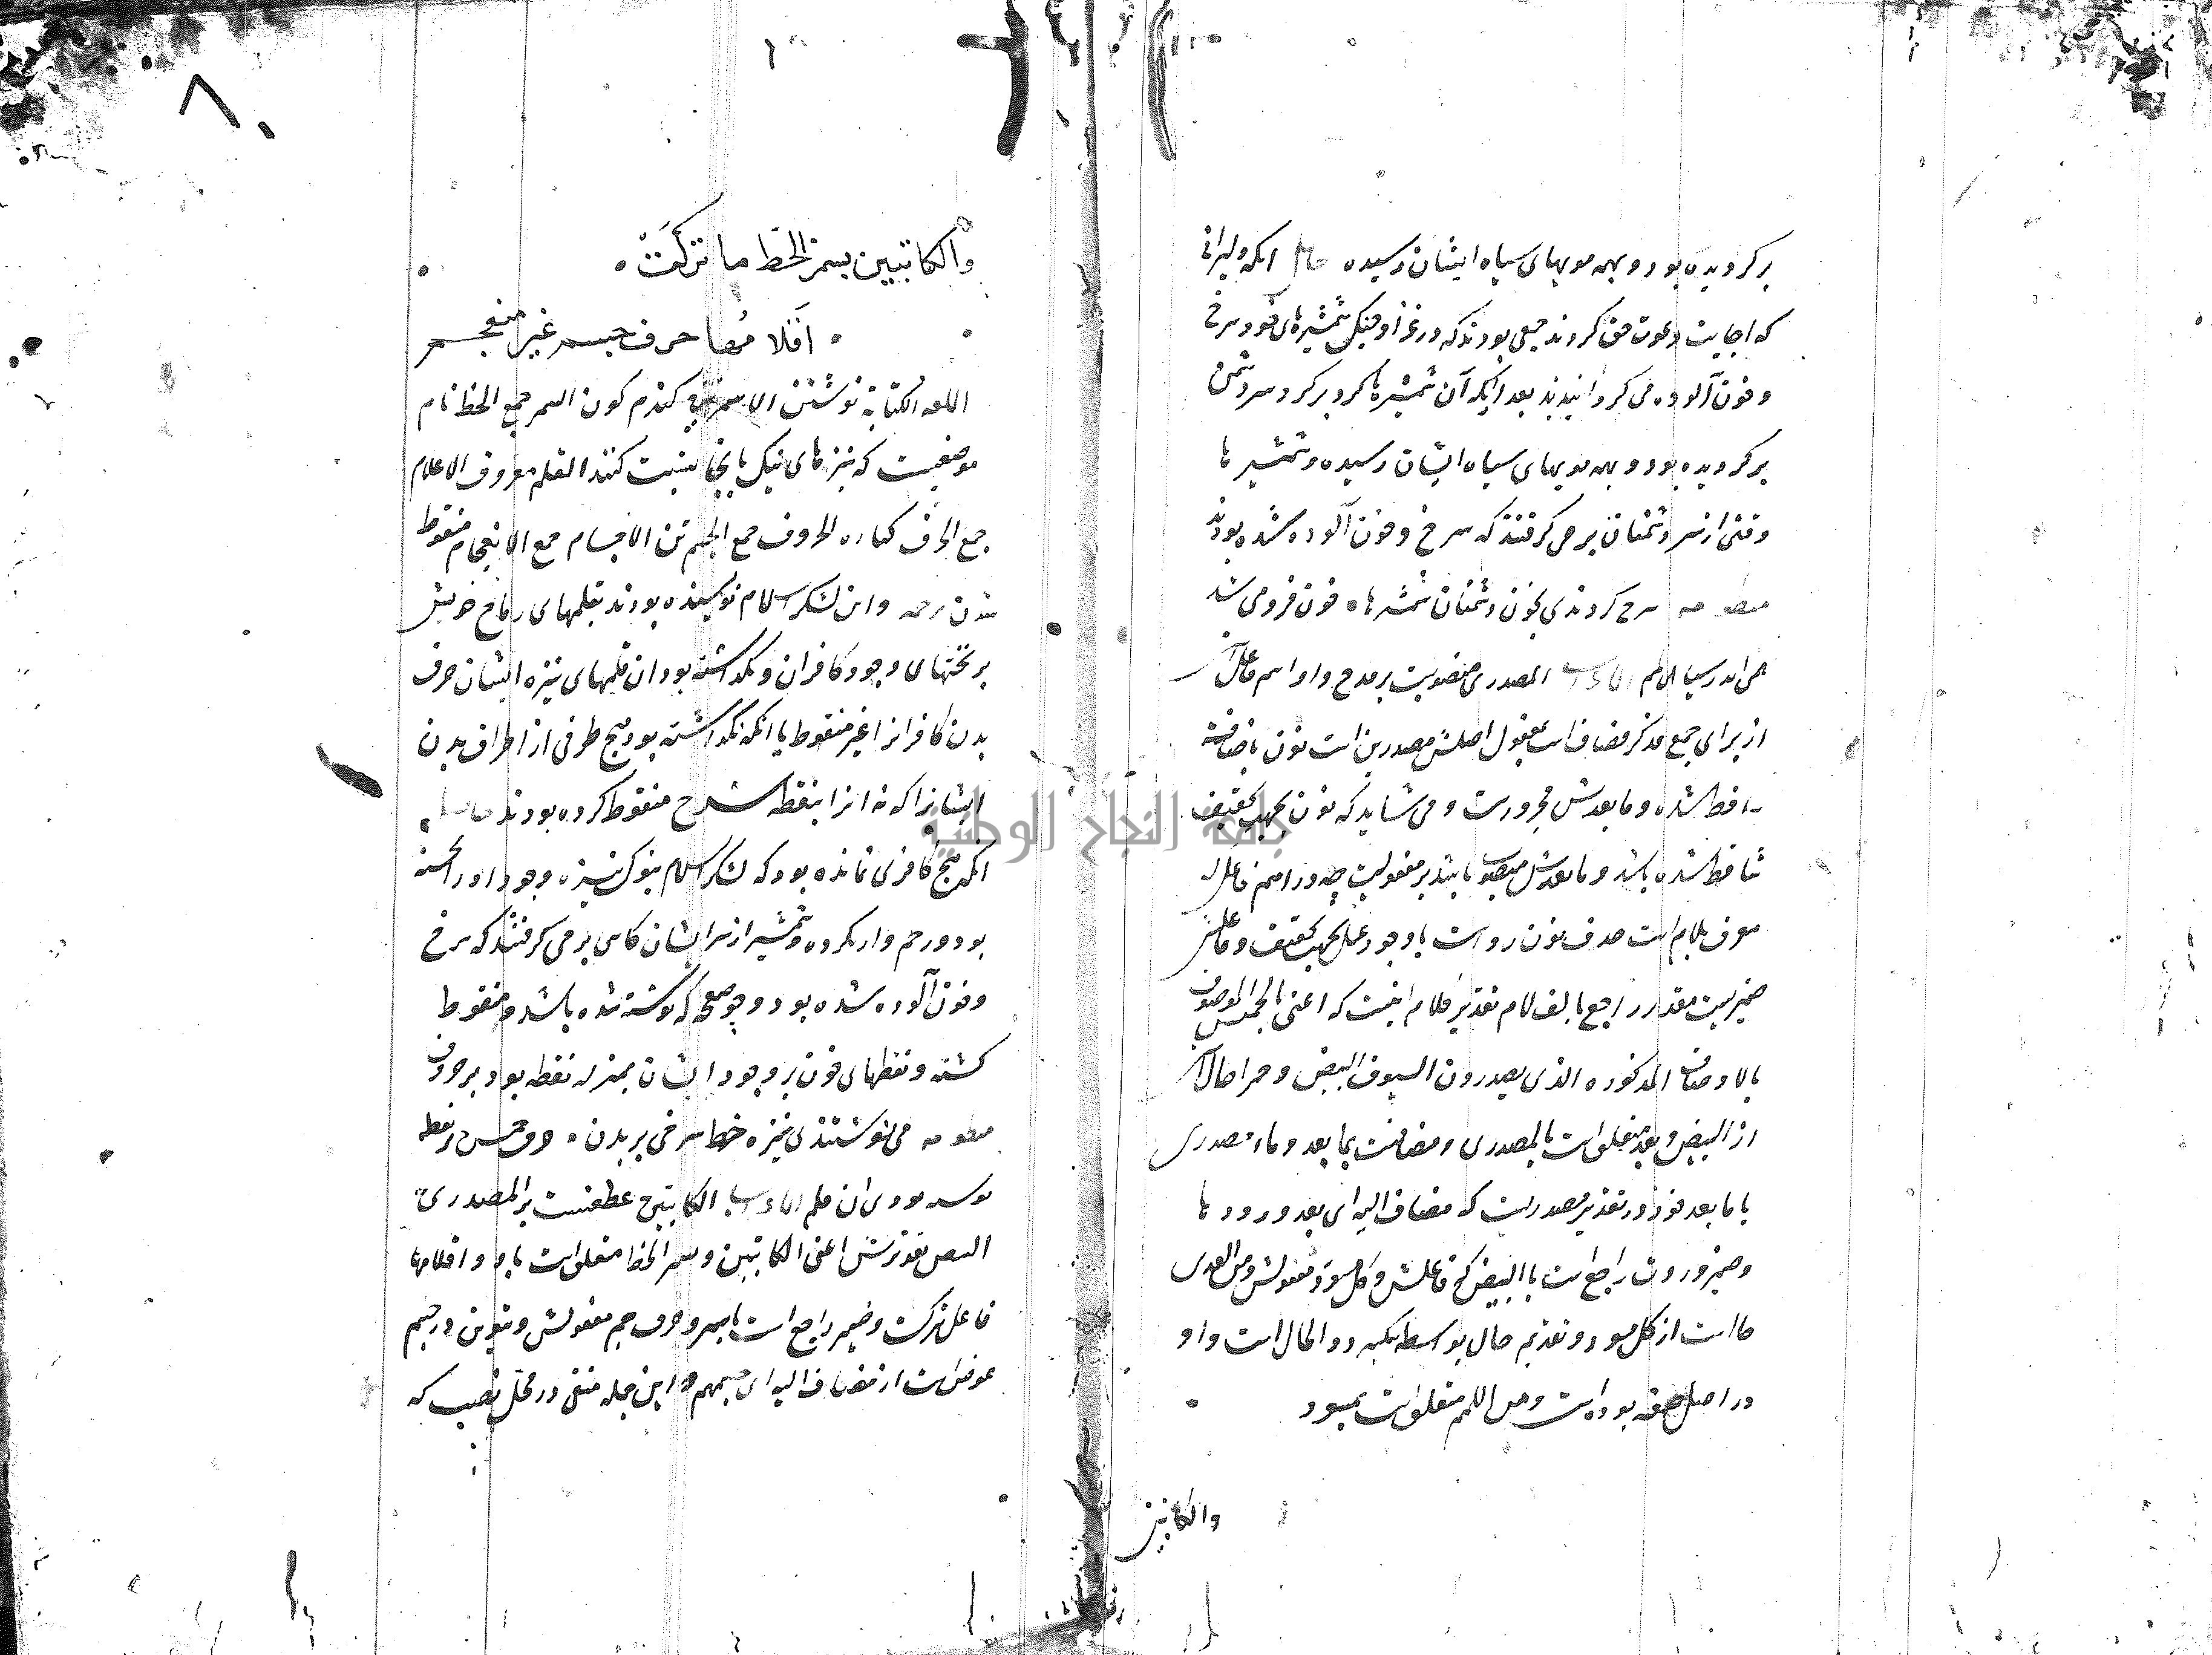 بر کردیده بود و بهمه مویهای سیاه ایشان رسیده حاصل انکه دلیرانی
که اجابت دعوت حق کردند جمعی بودند که در غزا و جنک شمشیرهای خود سرخ
و خون آلوده می کردانیدند بعد از انکه آن شمشیرها کرد بر کرد سر دشمن
بر کردیده بود و بهمه مویهای سیاه ایشان رسیده و شمشیر ها
وقتی از سر دشمنان بر می کرفتند که سرخ و خون آلوده شده بودند
منظومه سرخ کردندی بخون دشمنان شمشیرها خون فرو می شد
الاعراب المصدری منصوبست بر مدح و او اسم فاعل است
از برای جمع مذکر مضاف است بمفعول اصلش مصدرین است نون باضافه
ساقط شده و ما بعدش مجرورست و می شاید که نون بجهت تخفیف
ساقط شده باشد و ما بعدش منصوب باشد بر مفعولیت چه در اسم فاعل که
معرف بلام است حذف نون رواست با وجود عمل بجهت تخفیف و فاعلش
ضمیریست مقدر راجع بالف لام تقدیر کلام اینست که اعنی الموصوف
بالاوصاف المذکوره الذی یصدرون السیوف البیض و حمرا حال است
از البیض و بعد متعلق است بالمصدری و مضافست بما بعد و ماء مصدری
با ما بعد خود در تقدیر مصدریست که مضاف الیه ای بعد ورودها
و ضمیر وردت راجع است با البیض که فاعلش و کل مسود مفعولش و من العدی
حال است از کل مسود و تقدیم حال بواسطه نکیر ذو الحال است و او
در اصل صفه بوده است و من اللمم متعلق است بمسود
والکاتبین
۸۰
والكاتبين بسمر الخط ما تركت
اقلامها حرف جسم غير منعجم
اللغه الکتابة نوشتن الاسمر کندم کون السمر جمع الخط نام
موضعیست که نیزهای نیک بانجا نسبت کنند القلم معروف الاقلام
جمع الحرف کناره الحروف جمع الجسم تن الاجسام جمع الانعجام منقوط
شدن ترجمه و این لشکر اسلام نویسنده بودند بقلمهای رماح خویش
بر تختهای وجود کافران و نکذاشته بود ان قلمهای نیزه ایشان حرف
بدن کافرانرا غیر منقوط یا انکه نکذاشته بود هیچ طرفی از اطراف بدن
ایشانرا که نه انرا بنقطه سرخ منقوط کرده بودند حاصل
انکه هیچ کافری نمانده بود که لشکر اسلام بنوک نیزه وجود او را خسته
بود و رحم وار نکرده و شمشیر از سر ایشان کاهی بر می کرفتند که سرخ
و خون آلوده شده بود و چو صفحه که نوشته شده باشد و منقوط
کشته و نقطهای خون بر وجود ایشان بمنزله نقطه بود بر حروف
منظومه می نوشتندی بنیزه خط سرخی بر بدن
الاعراب الکاتبین عطفست بر المصدری
البیض تقدیرش اعنی الکاتبین و بسمر الخط متعلق است باو و اقلامها
فاعل ترکت و ضمیر راجع است بالسمر و حرف جسم مفعولش و تنوین در جسم
عوض است از مضاف الیه ای جسمهم و این جمله منفی در محل نصب که
جامعة النجاح الوطنية